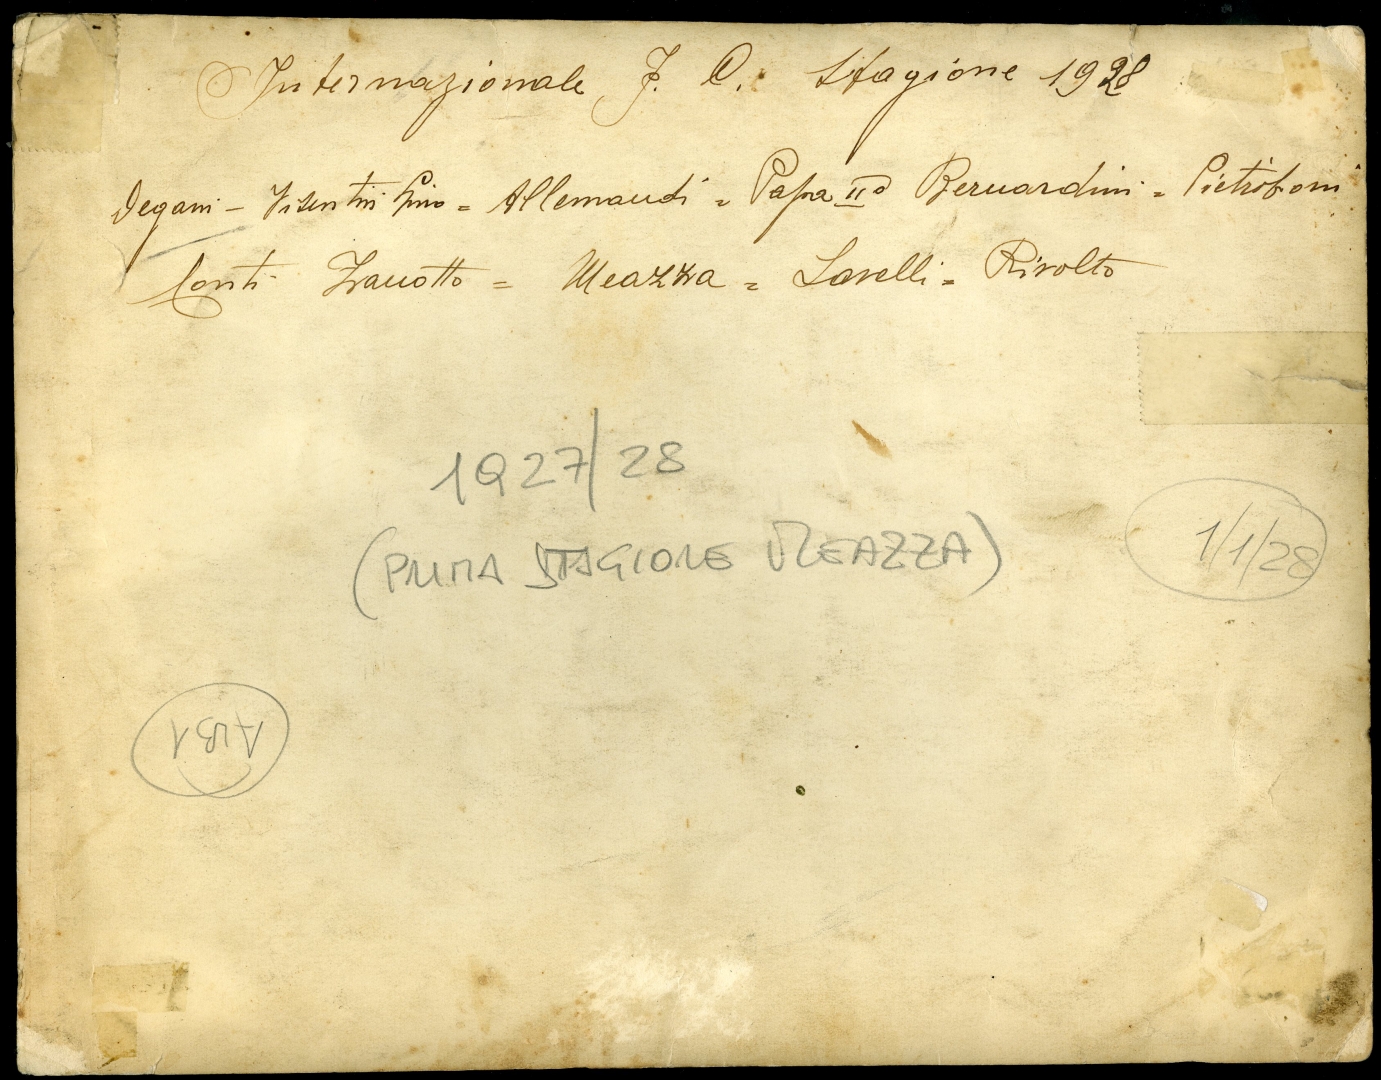 Internazionale F. C. Stagione 1928
Degani - Visentin Gino = Allemandi = Papa IIº Bernardini = Pietroboni
Conti Zanotto = Meazza = Savelli = Rivolto
1927/28
(PRIMA STAGIONE MEAZZA)
1/1/28